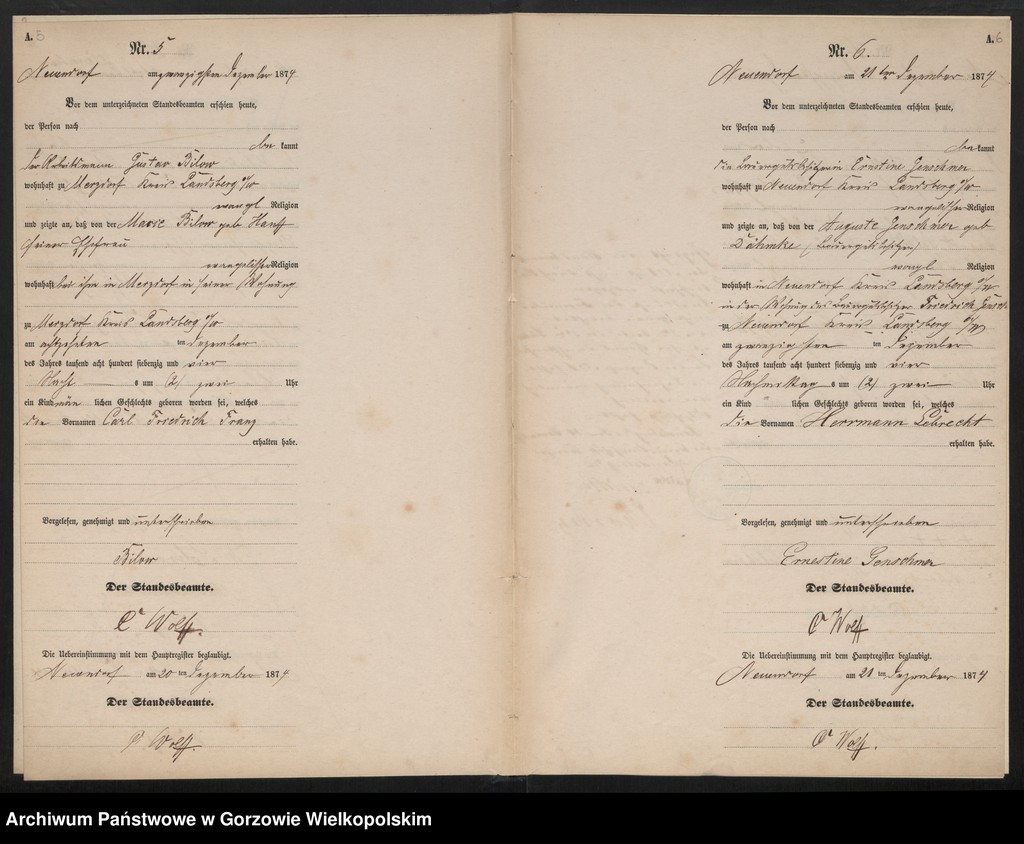 A. 5
Nr. 5
Neuendorf am zwanzigsten Dezember 1874
Vor dem unterzeichneten Standesbeamten erschien heute,
der Person nach
kannt
der Arbeitsmann Gustav Bilow
wohnhaft zu Merzdorf Kreis Landsberg a/W
evangl Religion
und zeigte an, daß von der Marie Bilow geb
seiner Ehefrau
evangelischer Religion
wohnhaft bei ihm in Merzdorf in seiner Wohnung
zu Merzdorf Kreis Landsberg a/W
am achtzehnten ten Dezember
des Jahres tausend acht hundert siebenzig und vier
Nacht s um (2) zwei Uhr
ein Kind män lichen Geschlechts geboren worden sei, welches
die Vornamen Carl Friedrich Franz
erhalten habe.
Vorgelesen, genehmigt und unterschrieben
Bilow
Der Standesbeamte.
Wolff.
Die Uebereinstimmung mit dem Hauptregister beglaubigt.
Neuendorf am 20 ten Dezember 1874
Der Standesbeamte.
Wolff.
A. 6
Nr. 6.
Neuendorf am 21 ten Dezember 1874
Vor dem unterzeichneten Standesbeamten erschien heute,
der Person nach
kannt
die Ernstine Genschmer
wohnhaft zu Neuendorf Kreis Landsberg a/W
evangelischer Religion
und zeigte an, daß von der Auguste Genschmer geb
Dähmke
evangl Religion
wohnhaft in Neuendorf Kreis Landsberg a/W
in der Wohnung des Friedrich
zu Neuendorf Kreis Landsberg a/W
am zwanzigsten ten Dezember
des Jahres tausend acht hundert siebenzig und vier
Nachmittag s um (2) zwei Uhr
ein Kind lichen Geschlechts geboren worden sei, welches
die Vornamen Herrmann Lebrecht
erhalten habe.
Vorgelesen, genehmigt und unterschrieben
Ernestine Genschmer
Der Standesbeamte.
Wolff
Die Uebereinstimmung mit dem Hauptregister beglaubigt.
Neuendorf am 21 ten Dezember 1874
Der Standesbeamte.
Wolff.
Archiwum Państwowe w Gorzowie Wielkopolskim